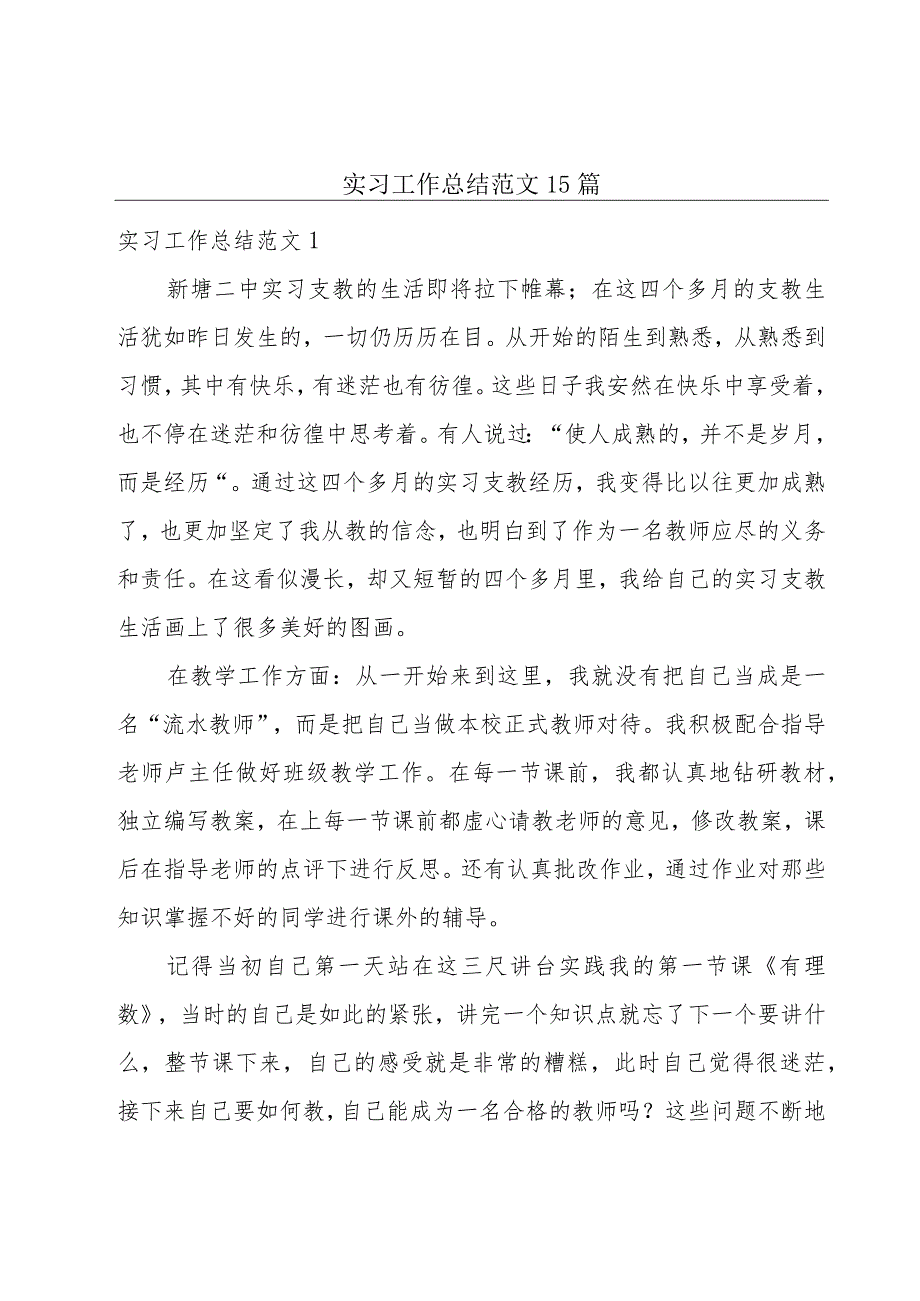 实习工作总结范文 15 篇
实习工作总结范文 1
新塘二中实习支教的生活即将拉下帷幕；在这四个多月的支教生
活犹如昨日发生的，一切仍历历在目。从开始的陌生到熟悉，从熟悉到
习惯，其中有快乐，有迷茫也有彷徨。这些日子我安然在快乐中享受着，
也不停在迷茫和彷徨中思考着。有人说过：“使人成熟的，并不是岁月，
而是经历“。通过这四个多月的实习支教经历，我变得比以往更加成熟
了，也更加坚定了我从教的信念，也明白到了作为一名教师应尽的义务
和责任。在这看似漫长，却又短暂的四个多月里，我给自己的实习支教
生活画上了很多美好的图画。
在教学工作方面：从一开始来到这里，我就没有把自己当成是一
名“流水教师”，而是把自己当做本校正式教师对待。我积极配合指导
老师卢主任做好班级教学工作。在每一节课前，我都认真地钻研教材，
独立编写教案，在上每一节课前都虚心请教老师的意见，修改教案，课
后在指导老师的点评下进行反思。还有认真批改作业，通过作业对那些
知识掌握不好的同学进行课外的辅导。
记得当初自己第一天站在这三尺讲台实践我的第一节课《有理
数》，当时的自己是如此的紧张，讲完一个知识点就忘了下一个要讲什
么，整节课下来，自己的感受就是非常的糟糕，此时自己觉得很迷茫，
接下来自己要如何教，自己能成为一名合格的教师吗？这些问题不断地